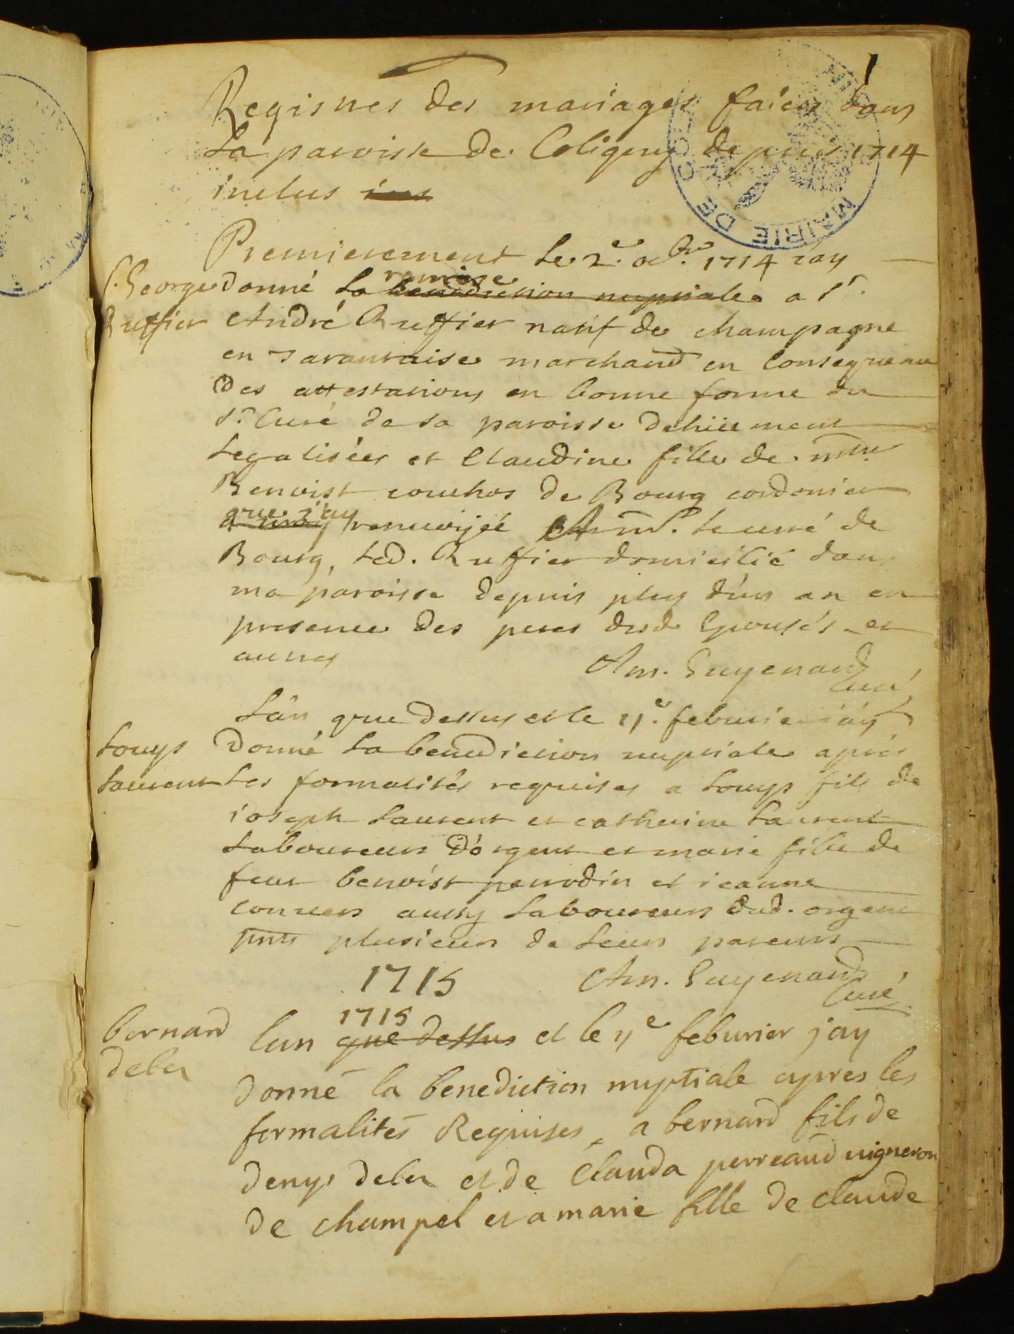 1
Registres des mariages faicts dans
la paroisse de Coligny depuis 1714
inclus
Premierement le 2e. oc.bre 1714 iay
George donné la remise benediction nuptiale a Sr.
Ruffier André Ruffier natif de champagne
en Tarantaise marchand en consequence
des attestations en bonne forme du
Sr. Curé de sa paroisse dehüement
legalisées et Claudine fille de mtre
Benoist couchos de Bourg cordonier
que j'ay renvoijéé a mr. le curé de
Bourg, led. Ruffier domicilié dans
ma paroisse depuis plus d'un an en
presence des peres desd. Epousés et
autres Am. Guyenaud
Curé
L'an que dessus et le 11e. feburier j'ay
Louys donné la benediction nuptiale aprés
Laurent les formalités requises a Louys fils de
ioseph Laurent et catherine Laurent
Laboureurs d'orgent et marie fille de
feu benoist perrodin et ieanne
convers aussy Laboureurs dud. orgent
pnts plusieurs de leurs parents
1715 Am. Guyenaud
Curé
MAIRIE DE
bernard lan 1715 que dessus et le 11e feburier jay
deler
donné la benediction nuptiale apres les
formalités Requises, a bernard fils de
denys deler et de Clauda perreaud vigneron
de champel et a marie fille de claude